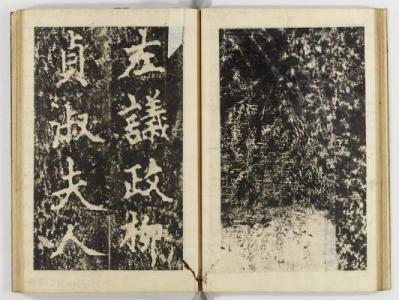 左議政柳
貞淑夫人